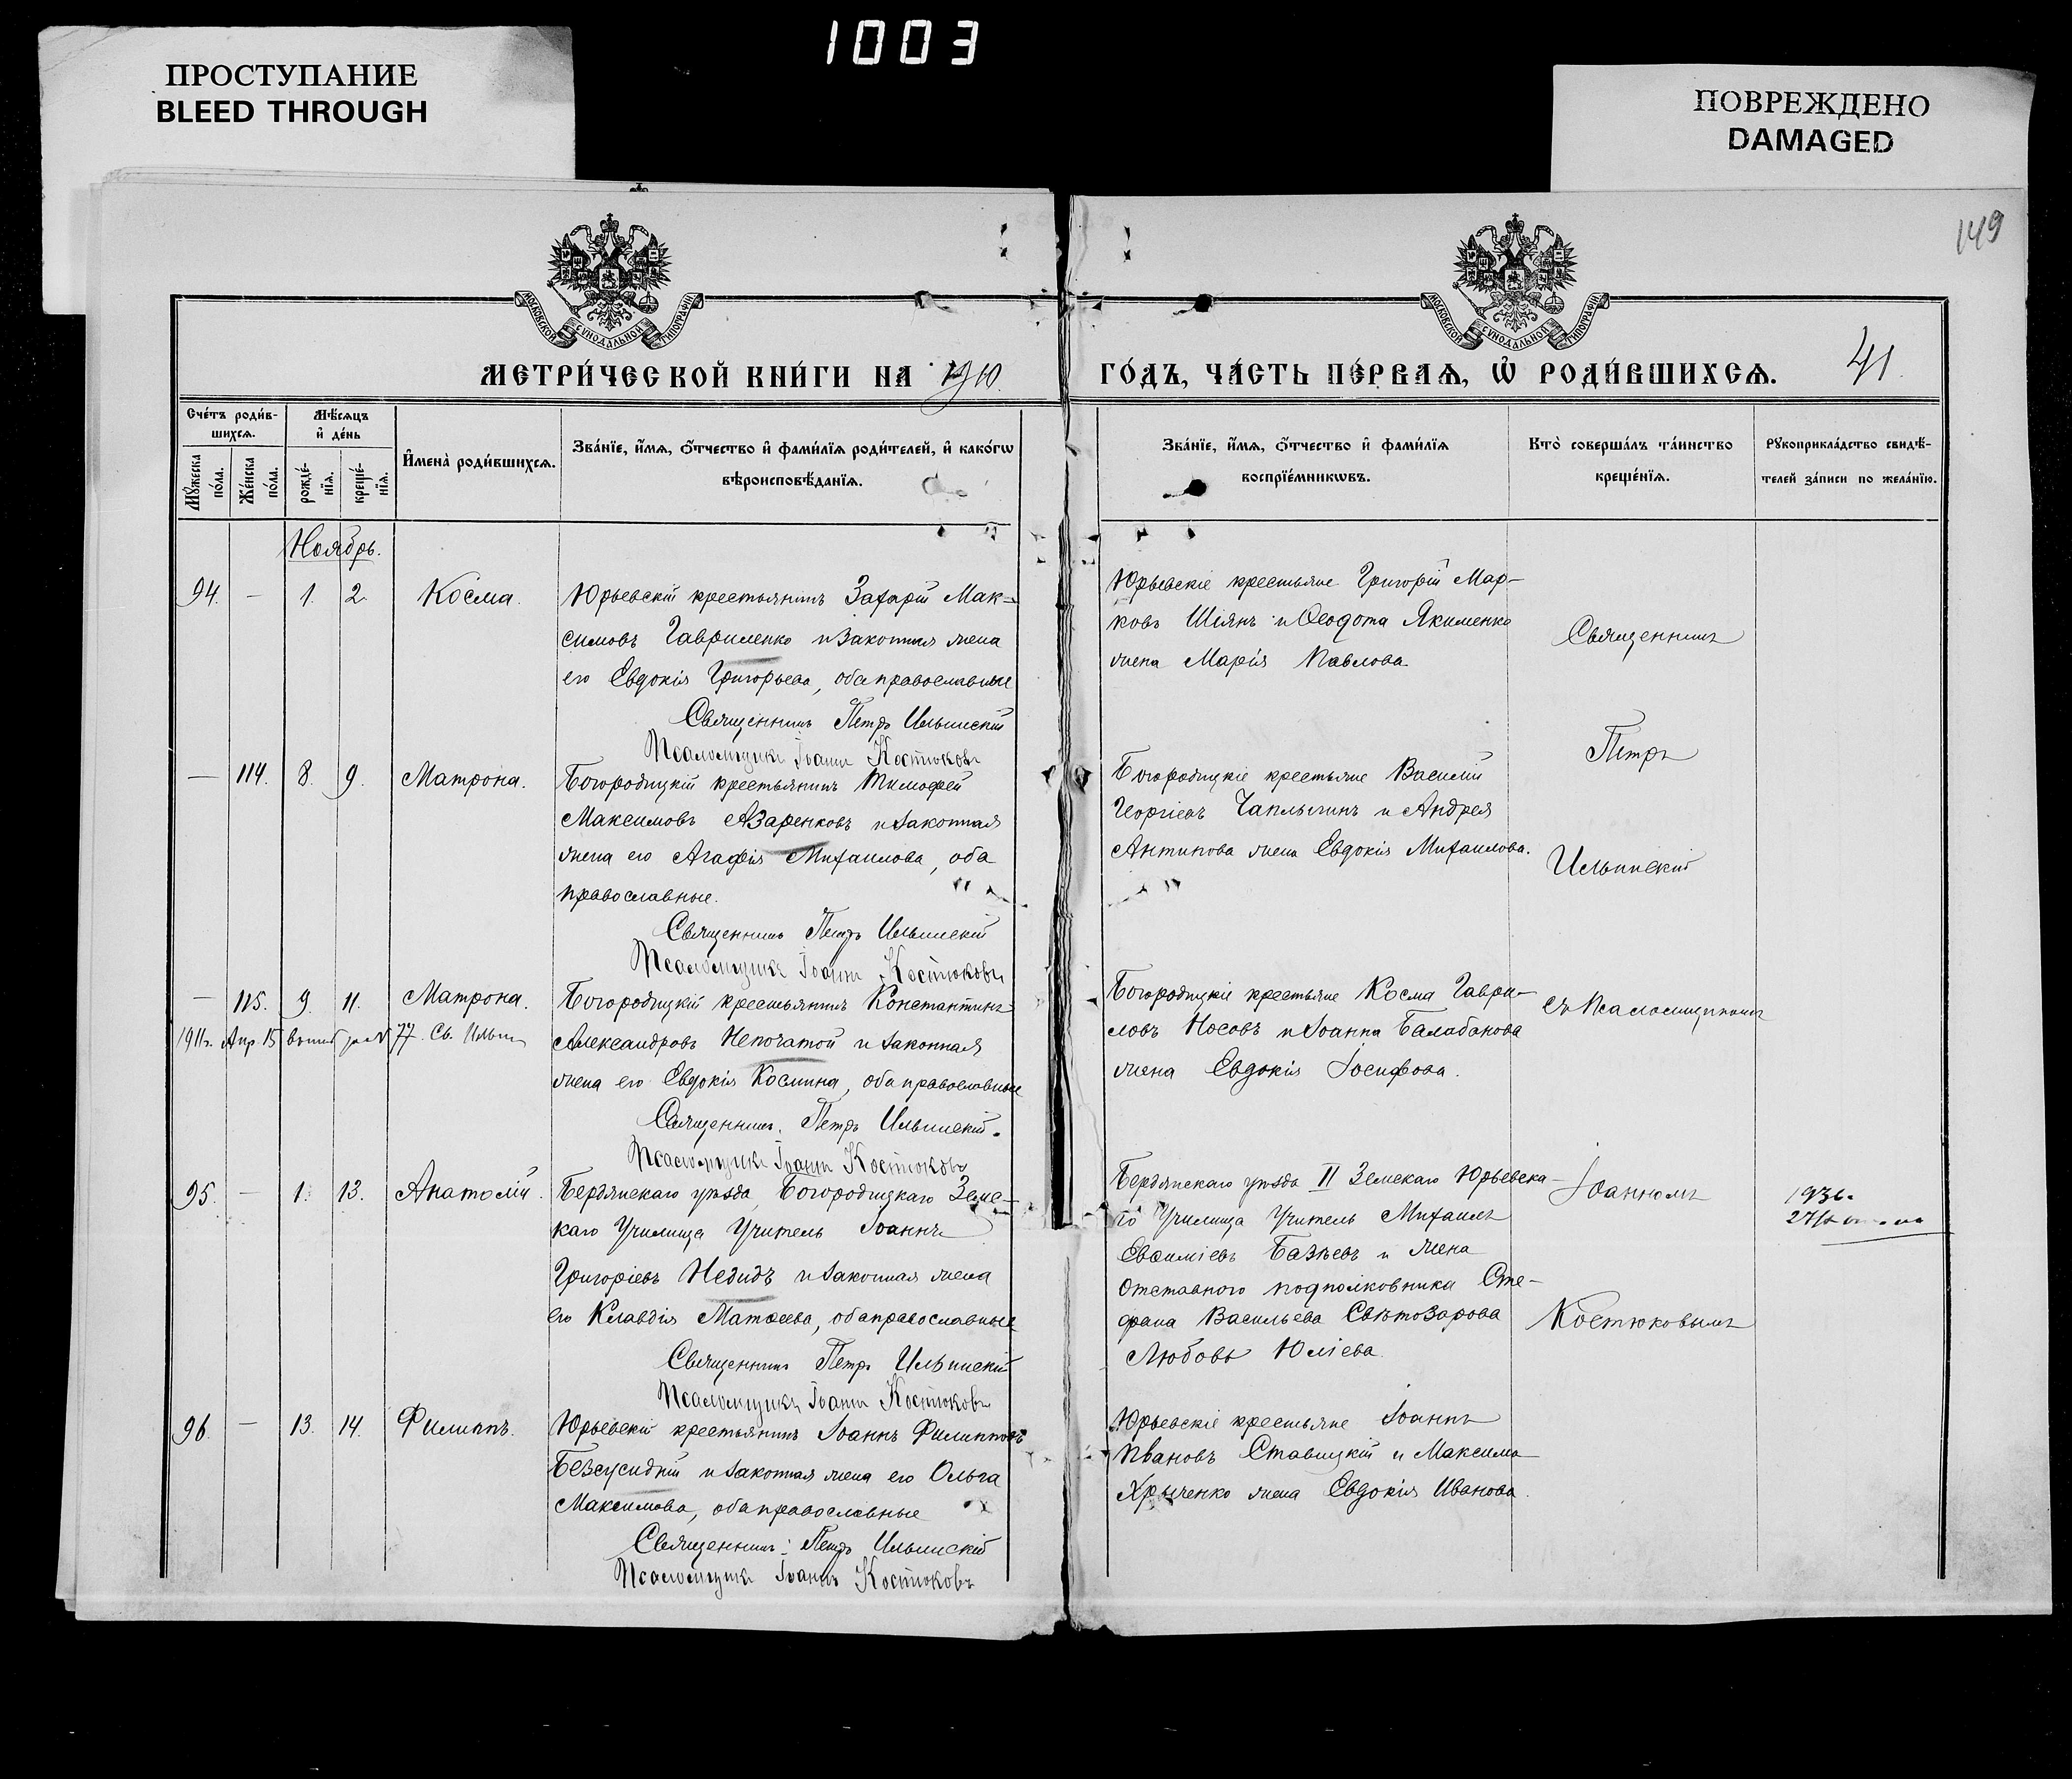 1003
ПРОСТУПАНИЕ
BLEED THROUGH
ПОВРЕЖДЕНО
DAMAGED
149
МОСКОВСКОЙ СУНОДАЛЬНОЙ ТИПОГРАФІИ
МОСКОВСКОЙ СУНОДАЛЬНОЙ ТИПОГРАФІИ
МЕТРИ́ЧЕСКОЙ КНИ́ГИ НА 1910.
ГО́ДЪ, ЧА́СТЬ ПЕ́РВАѦ, Ѡ҆ РОДИ́ВШИХСѦ.
41.
Сче́тъ роди́в-
шихсѧ.
Мꙋ́жеска по́ла.
Же́нска по́ла.
Мѣ́сѧцъ
и҆ де́нь
рожде́-
нїѧ.
креще́-
нїѧ.
И҆мена̀ роди́вшихсѧ.
Зва́нїе, и҆́мѧ, ѻ҆́тчество и҆ фами́лїѧ роди́телей, и҆ како́гѡ
вѣроисповѣ́данїѧ.
Зва́нїе, и҆́мѧ, ѻ҆́тчество и҆ фами́лїѧ
воспрїе́мникѡвъ.
Кто̀ соверша́лъ та́инство
креще́нїѧ.
Рꙋкоприкла́дство свидѣ́-
телей за́писи по жела́нїю.
Ноябрь.
94. — 1. 2. Косма.
Юрьевскій крестьянинъ Захарій Мак=
симовъ Гавриленко и законная жена
его Евдокія Григорьева, оба православные
Священникъ Петръ Ильинскій
Псаломщикъ Іоаннъ Костюковъ
Юрьевскіе крестьяне Григорій Мар-
ковъ Шіянъ и Ѳеодота Якименко
жена Марія Павлова.
Священникъ
Петръ
— 114. 8. 9. Матрона.
Богородицкій крестьянинъ Тимофей
Максимовъ Азаренковъ и законная
жена его Агафія Михаилова, оба
православные.
Священникъ Петръ Ильинскій
Псаломщикъ Іоаннъ Костюковъ
Богородицкіе крестьяне Василій
Георгіевъ Чаплыгинъ и Андрея
Антипова жена Евдокія Михаилова.
Ильинскій
— 115. 9. 11. Матрона.
1911г. Апр. 15 77. Св. Ильин
Богородицкій крестьянинъ Константинъ
Александровъ Непочатой и законная
жена его Евдокія Космина, оба православные
Священникъ Петръ Ильинскій.
Псаломщикъ Іоаннъ Костюковъ
Богородицкіе крестьяне Косма Гаври-
ловъ Носовъ и Іоанна Балабанова
жена Евдокія Іосифова.
съ Псаломщикомъ
95. — 1. 13. Анатолій.
Бердянскаго уѣзда, Богородицкаго Земс-
каго Училища Учитель Іоаннъ
Григоріевъ Недидъ и законная жена
его Клавдія Матѳеева, оба православные
Священникъ Петръ Ильинскій
Псаломщикъ Іоаннъ Костюковъ
Бердянскаго уѣзда II Земскаго Юрьевска-
го Училища Учитель Михаилъ
Евѳиміевъ Базѣевъ и жена
Отставного подполковника Сте-
фана Васильева Свѣтозарова
Любовь Юліева.
Іоанномъ
Костюковымъ
96. — 13. 14. Филиппъ.
Юрьевскій крестьянинъ Іоаннъ Филипповъ
Безсусидній и законная жена его Ольга
Максимова, оба православные
Священникъ: Петръ Ильинскій
Псаломщикъ Іоаннъ Костюковъ
Юрьевскіе крестьяне Іоаннъ
Ивановъ Ставицкій и Максима
Хрыченко жена Евдокія Иванова.